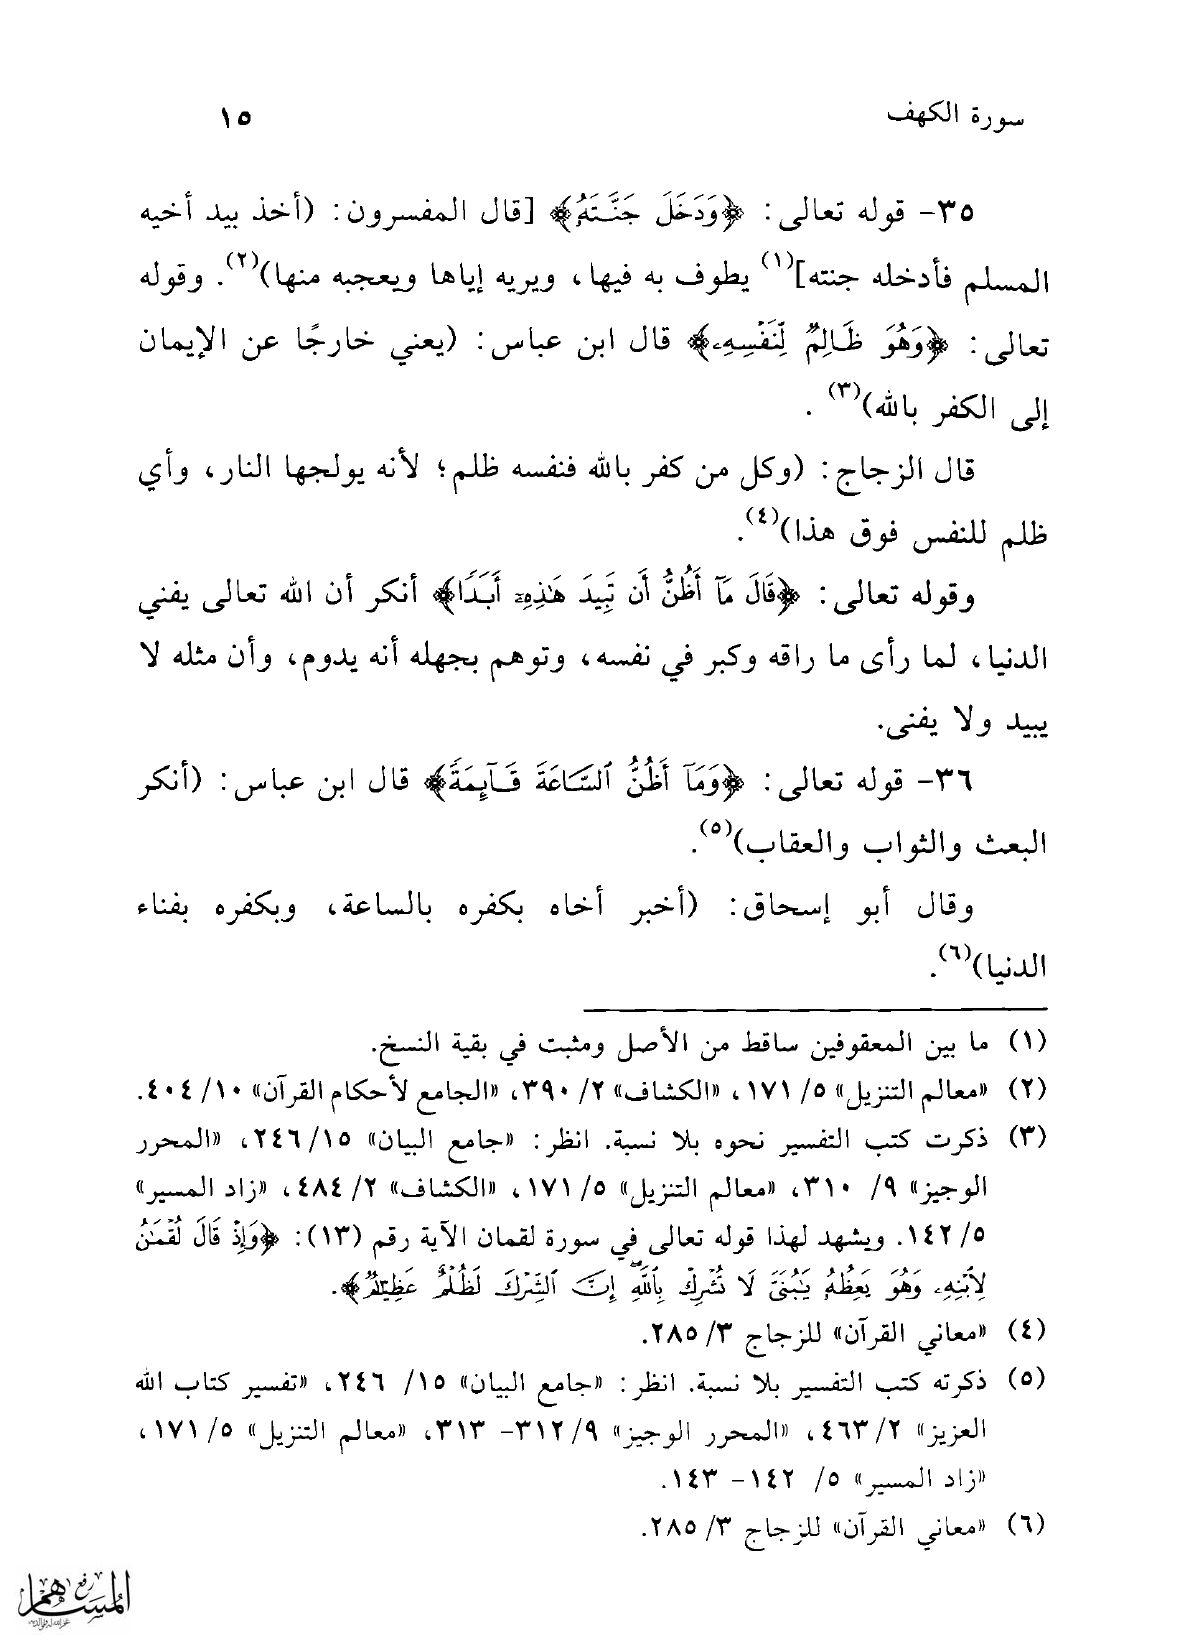 سورة الكهف ١٥
٣٥- قوله تعالى: ﴿وَدَخَلَ جَنَّتَهُۥ﴾ [قال المفسرون: (أخذ بيد أخيه
المسلم فأدخله جنته](١) يطوف به فيها، ويريه إياها ويعجبه منها)(٢). وقوله
تعالى: ﴿وَهُوَ ظَالِمٌ لِّنَفْسِهِۦ﴾ قال ابن عباس: (يعني خارجًا عن الإيمان
إلى الكفر بالله)(٣).
قال الزجاج: (وكل من كفر بالله فنفسه ظلم؛ لأنه يولجها النار، وأي
ظلم للنفس فوق هذا)(٤).
وقوله تعالى: ﴿قَالَ مَآ أَظُنُّ أَن تَبِيدَ هَٰذِهِۦٓ أَبَدًا﴾ أنكر أن الله تعالى يفني
الدنيا، لما رأى ما راقه وكبر في نفسه، وتوهم بجهله أنه يدوم، وأن مثله لا
يبيد ولا يفنى.
٣٦- قوله تعالى: ﴿وَمَآ أَظُنُّ ٱلسَّاعَةَ قَآئِمَةً﴾ قال ابن عباس: (أنكر
البعث والثواب والعقاب)(٥).
وقال أبو إسحاق: (أخبر أخاه بكفره بالساعة، وبكفره بفناء
الدنيا)(٦).
(١) ما بين المعقوفين ساقط من الأصل ومثبت في بقية النسخ.
(٢) «معالم التنزيل» ٥/ ١٧١، «الكشاف» ٢/ ٣٩٠، «الجامع لأحكام القرآن» ١٠/ ٤٠٤.
(٣) ذكرت كتب التفسير نحوه بلا نسبة. انظر: «جامع البيان» ١٥/ ٢٤٦، «المحرر
الوجيز» ٩/ ٣١٠، «معالم التنزيل» ٥/ ١٧١، «الكشاف» ٢/ ٤٨٤، «زاد المسير»
٥/ ١٤٢. ويشهد لهذا قوله تعالى في سورة لقمان الآية رقم (١٣): ﴿وَإِذْ قَالَ لُقْمَٰنُ
لِٱبْنِهِۦ وَهُوَ يَعِظُهُۥ يَٰبُنَىَّ لَا تُشْرِكْ بِٱللَّهِۖ إِنَّ ٱلشِّرْكَ لَظُلْمٌ عَظِيمٌ﴾.
(٤) «معاني القرآن» للزجاج ٣/ ٢٨٥.
(٥) ذكرته كتب التفسير بلا نسبة. انظر: «جامع البيان» ١٥/ ٢٤٦، «تفسير كتاب الله
العزيز» ٢/ ٤٦٣، «المحرر الوجيز» ٩/ ٣١٢- ٣١٣، «معالم التنزيل» ٥/ ١٧١،
«زاد المسير» ٥/ ١٤٢- ١٤٣.
(٦) «معاني القرآن» للزجاج ٣/ ٢٨٥.
رفع
المساهم